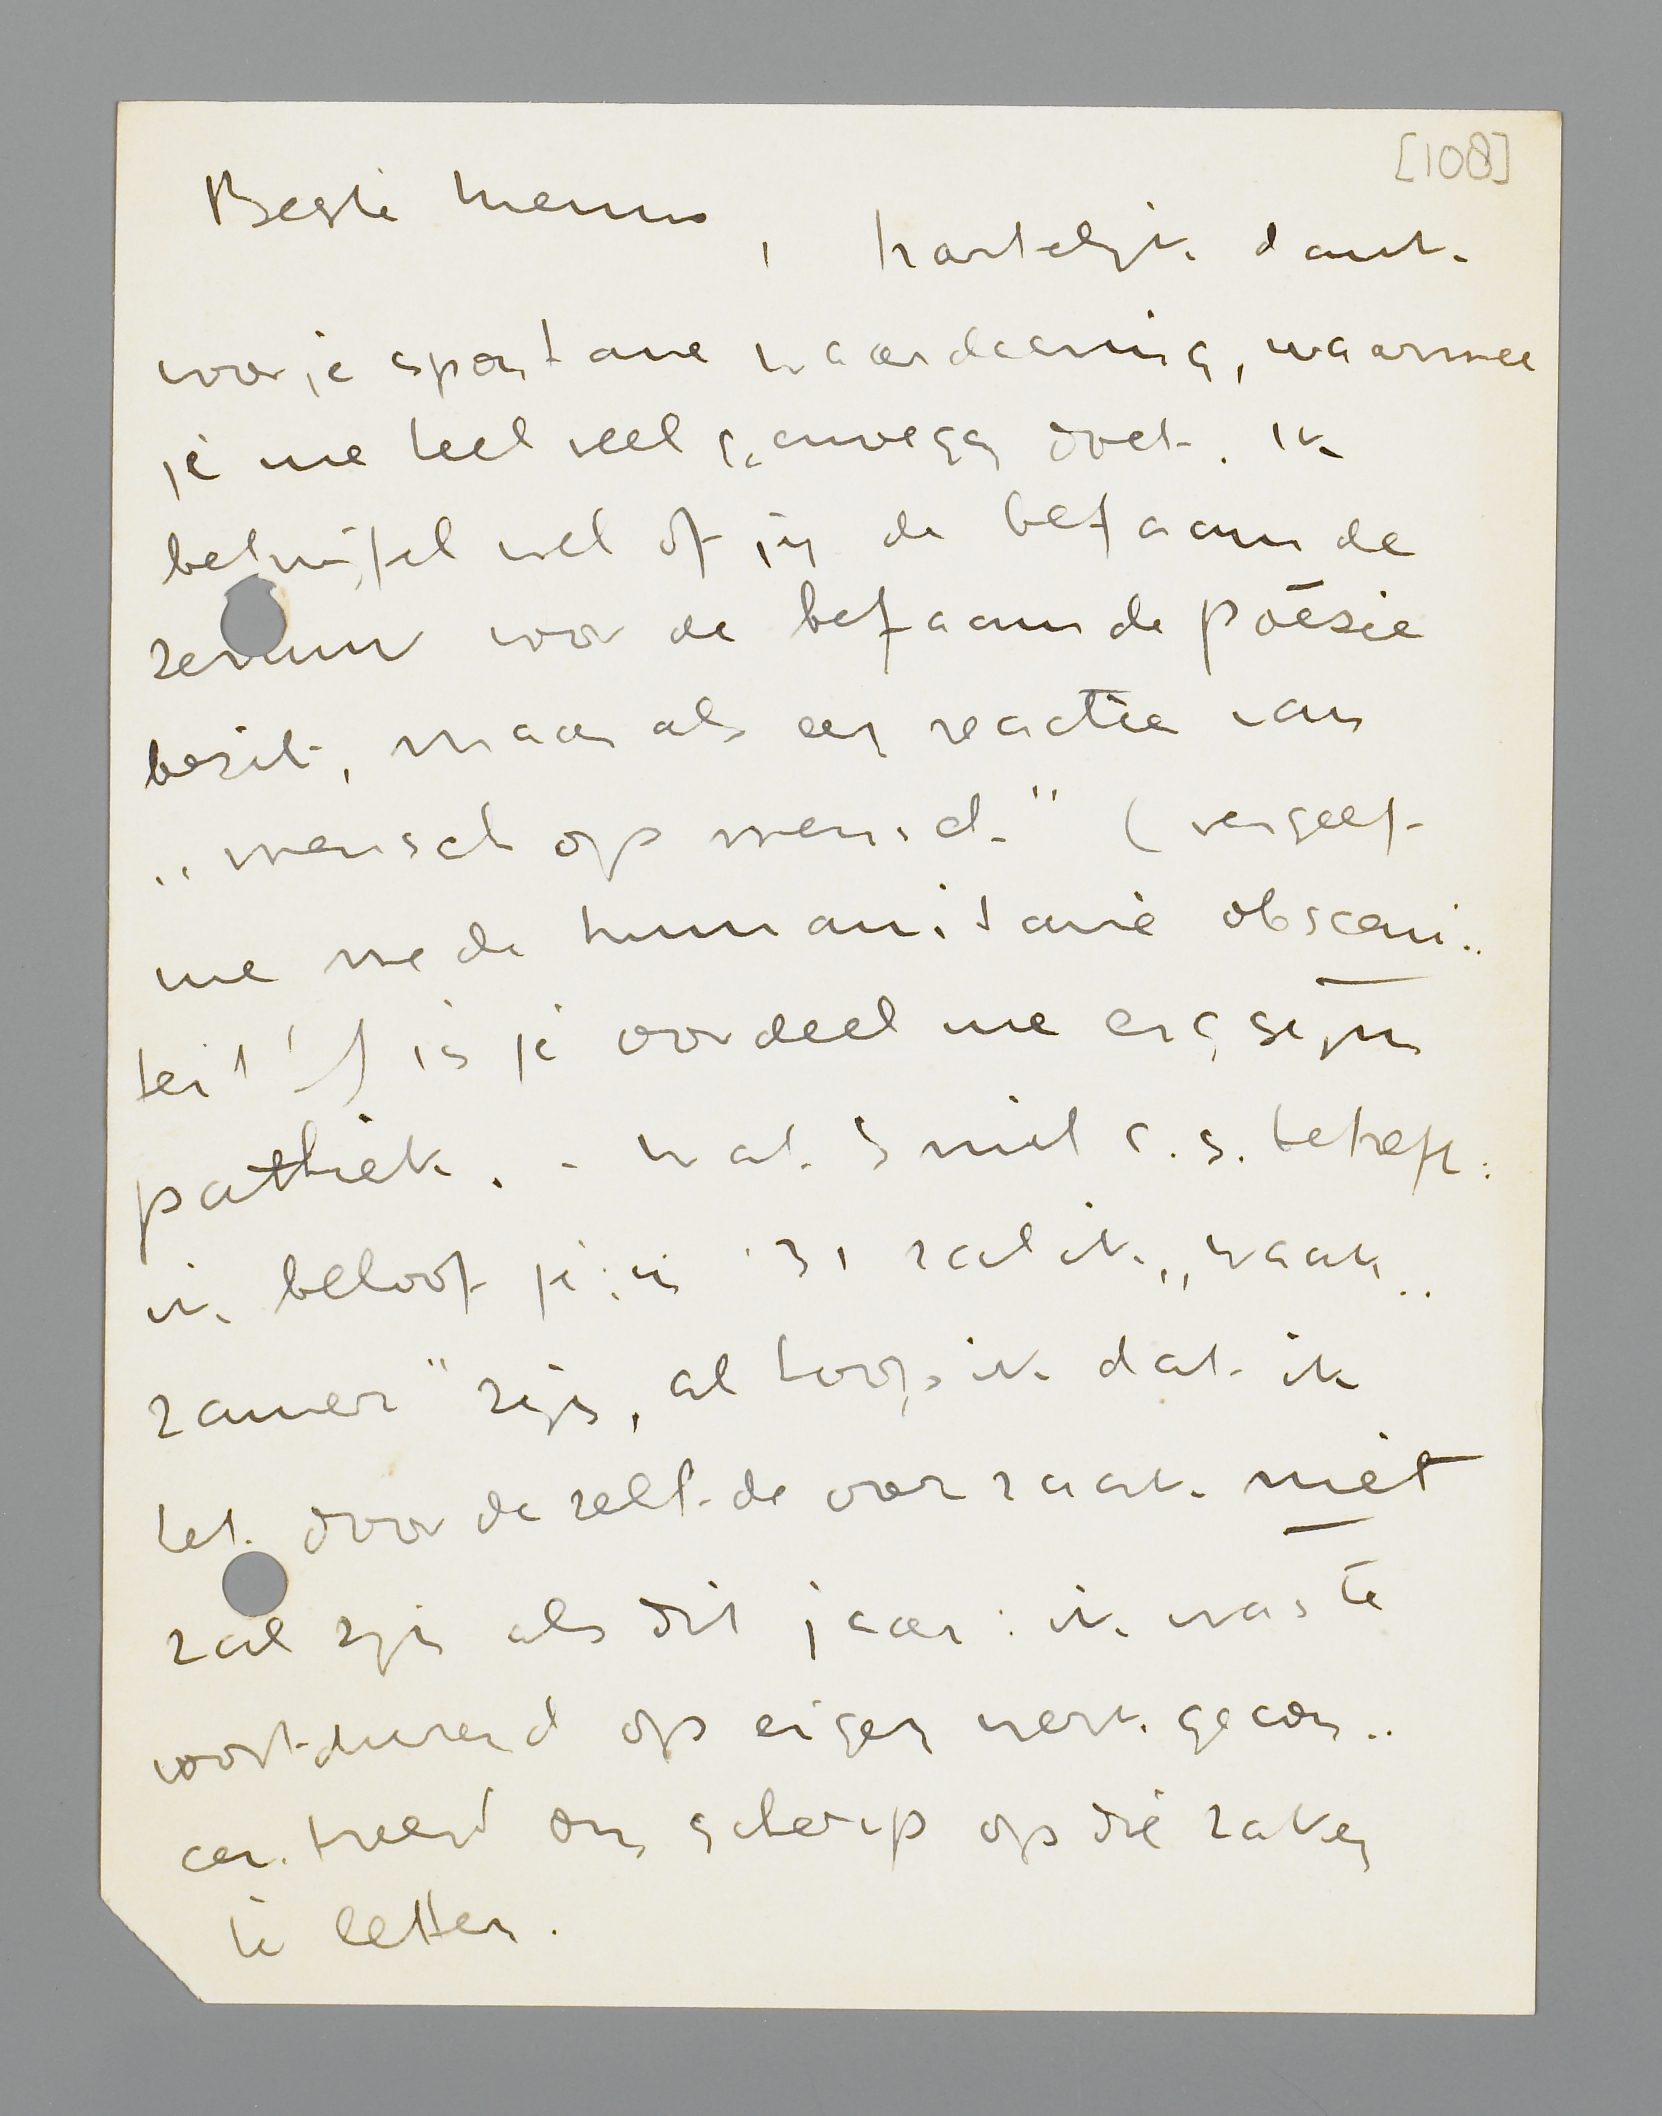 [108]
Beste Menno, hartelijk dank
voor je spontane waardeering, waarmee
je me heel veel genoegen doet. Ik
betwijfel wel of jij de befaamde
zenuw voor de befaamde poëzie
bezit, maar als een reactie van
„mensch op mensch" (vergeef
me mede humanitarië obsceni..
teit!) is je oordeel me erg sym
pathiek. - Wat Smit c.s. betreft:
ik beloof je: in '31 zal ik „waak..
zamer" zijn, al hoop ik dat ik
het door dezelfde oorzaak niet
zal zijn als dit jaar: ik was te
voortdurend op eigen werk gecon..
centreerd om scherp op die zaken
te letten.